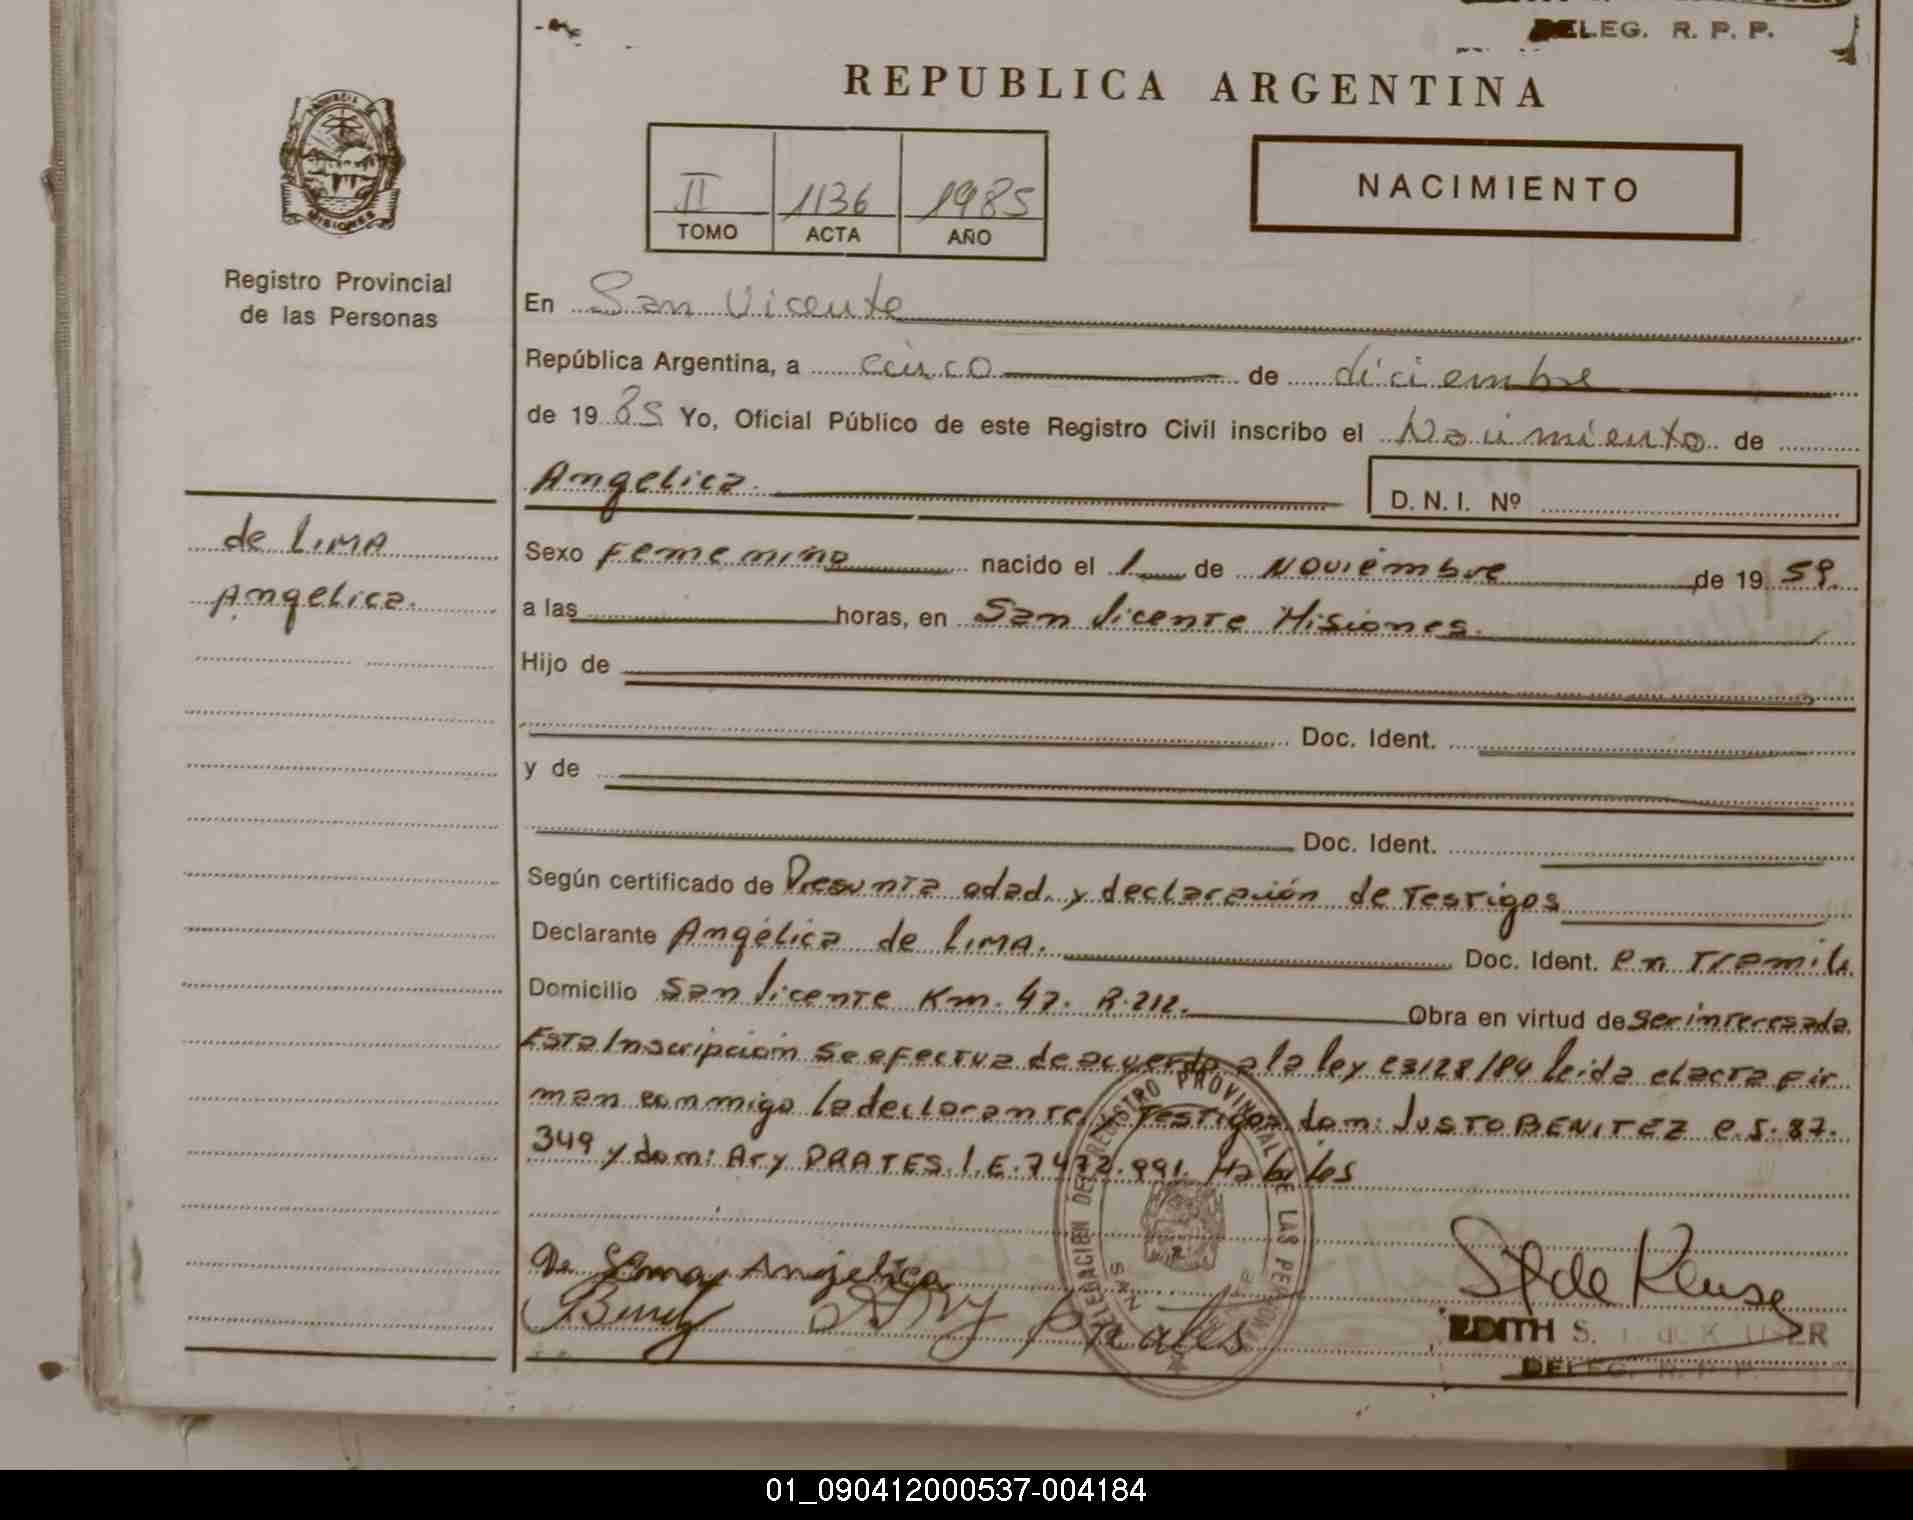 DELEG. R. P. P.
REPUBLICA ARGENTINA
PROVINCIA DE MISIONES
II 1136 1985
TOMO ACTA AÑO
NACIMIENTO
Registro Provincial
de las Personas
En San Vicente
República Argentina, a cinco de diciembre
de 1985 Yo, Oficial Público de este Registro Civil inscribo el Nacimiento de
Angelica. D. N. I. Nº
de LIMA
Angelica.
Sexo Femenino nacido el 1 de Noviembre de 19 59.
a las horas, en San Vicente Misiones.
Hijo de
Doc. Ident.
y de
Doc. Ident.
Según certificado de Presunta edad. y declaración de Testigos
Declarante Angélica de LIMA. Doc. Ident. en Tramite
Domicilio San Vicente Km. 47. R.212. Obra en virtud de ser interesada
Esta Inscripcion se efectua de acuerdo a la ley 23128/84 leida el acta fir
man conmigo la declarante y Testigos dom: JUSTO BENITEZ C.I. 87.
349 y dom: Ary PRATES. L.E. 7472.991. Habiles
DELEGACION DEL REGISTRO PROVINCIAL DE LAS PERSONAS
SAN VICENTE
De Lima Angelica
Benitez Ary Prates
EDITH S.
DELEG. R. P. P.
01_090412000537-004184